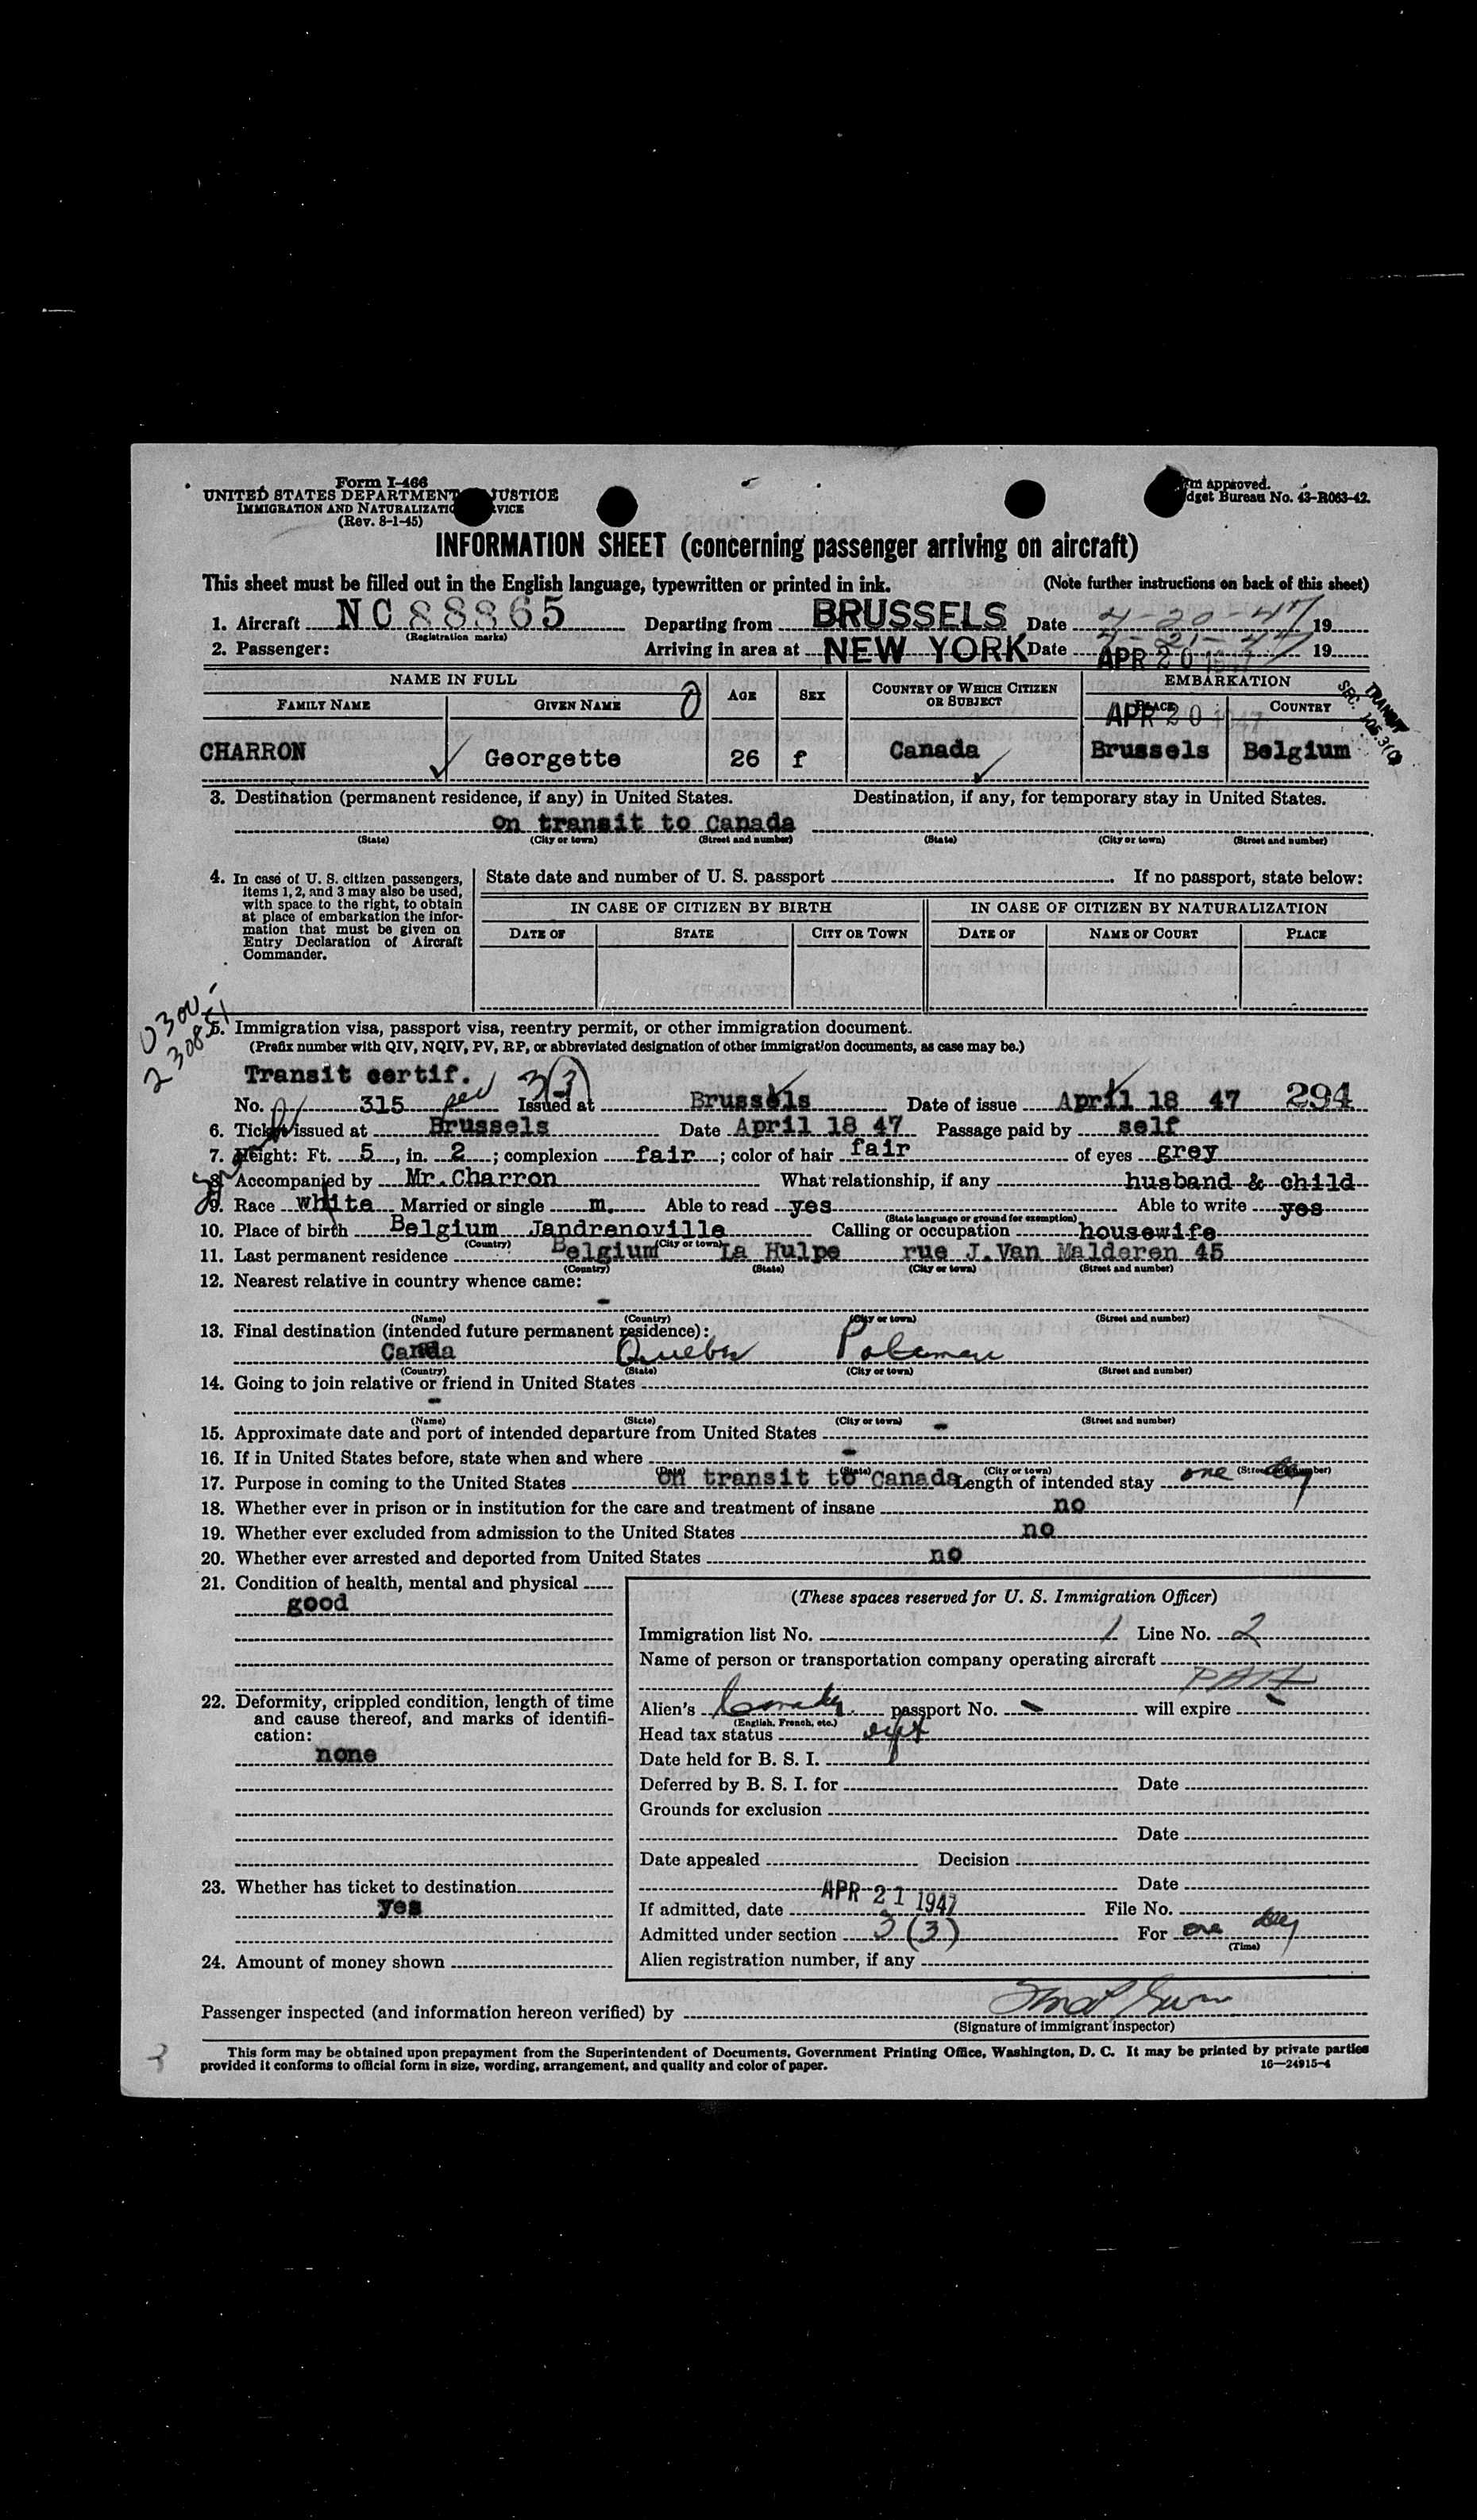 Form I-466
UNITED STATES DEPARTMENT JUSTICE
IMMIGRATION AND NATURALIZATIO VICE
(Rev. 8-1-45)
m approved.
dget Bureau No. 43-R063-42.
INFORMATION SHEET (concerning passenger arriving on aircraft)
This sheet must be filled out in the English language, typewritten or printed in ink. (Note further instructions on back of this sheet)
1. Aircraft NC88865 Departing from BRUSSELS Date 4-20-47 19
(Registration marks)
2. Passenger: Arriving in area at NEW YORK Date 4-21-47 19
APR 20 1947
NAME IN FULL AGE SEX COUNTRY OF WHICH CITIZEN OR SUBJECT EMBARKATION
FAMILY NAME GIVEN NAME PLACE COUNTRY
APR 20 1947
TRANSIT
CHARRON Georgette 26 f Canada Brussels Belgium
3. Destination (permanent residence, if any) in United States. Destination, if any, for temporary stay in United States.
on transit to Canada
(State) (City or town) (Street and number) (State) (City or town) (Street and number)
4. In case of U. S. citizen passengers, items 1, 2, and 3 may also be used, with space to the right, to obtain at place of embarkation the information that must be given on Entry Declaration of Aircraft Commander.
State date and number of U. S. passport If no passport, state below:
IN CASE OF CITIZEN BY BIRTH IN CASE OF CITIZEN BY NATURALIZATION
DATE OF STATE CITY OR TOWN DATE OF NAME OF COURT PLACE
0300-
23085
5. Immigration visa, passport visa, reentry permit, or other immigration document.
(Prefix number with QIV, NQIV, PV, RP, or abbreviated designation of other immigration documents, as case may be.)
Transit certif. 3(3)
No. 315 Issued at Brussels Date of issue April 18 47 294
6. Ticket issued at Brussels Date April 18 47 Passage paid by self
7. Height: Ft. 5, in. 2; complexion fair; color of hair fair of eyes grey
8. Accompanied by Mr. Charron What relationship, if any husband & child
9. Race white Married or single m. Able to read yes Able to write yes
(State language or ground for exemption)
10. Place of birth Belgium Jandrenoville Calling or occupation housewife
(Country) (City or town)
11. Last permanent residence Belgium La Hulpe rue J. Van Malderen 45
(Country) (State) (City or town) (Street and number)
12. Nearest relative in country whence came:
-
(Name) (Country) (City or town) (Street and number)
13. Final destination (intended future permanent residence):
Canada Quebec
(Country) (State) (City or town) (Street and number)
14. Going to join relative or friend in United States
-
(Name) (State) (City or town) (Street and number)
15. Approximate date and port of intended departure from United States -
16. If in United States before, state when and where -
(Date) (State) (City or town) (Street and number)
17. Purpose in coming to the United States on transit to Canada Length of intended stay one day
18. Whether ever in prison or in institution for the care and treatment of insane no
19. Whether ever excluded from admission to the United States no
20. Whether ever arrested and deported from United States no
21. Condition of health, mental and physical
good
22. Deformity, crippled condition, length of time and cause thereof, and marks of identification:
none
23. Whether has ticket to destination
yes
24. Amount of money shown
(These spaces reserved for U. S. Immigration Officer)
Immigration list No. 1 Line No. 2
Name of person or transportation company operating aircraft
PAA
Alien's passport No. - will expire -
(English, French, etc.)
Head tax status
Date held for B. S. I.
Deferred by B. S. I. for Date
Grounds for exclusion
Date
Date appealed Decision
Date
If admitted, date APR 21 1947 File No.
Admitted under section 3(3) For one day
(Time)
Alien registration number, if any
Passenger inspected (and information hereon verified) by
(Signature of immigrant inspector)
This form may be obtained upon prepayment from the Superintendent of Documents, Government Printing Office, Washington, D. C. It may be printed by private parties
provided it conforms to official form in size, wording, arrangement, and quality and color of paper. 16—24915-4